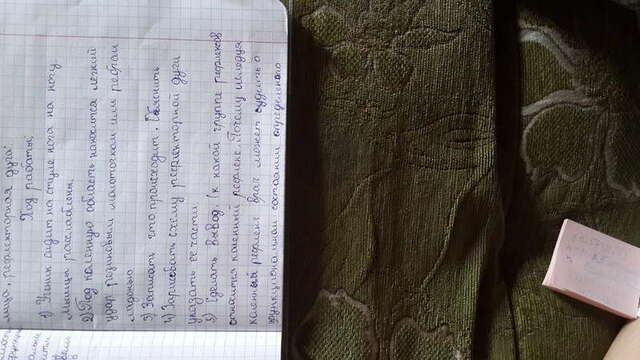 рефлекторная дуга"
Ход работы:
1) Ученик сидит на стуле нога на ногу
мышцы расслаблены.
2) Под коленную область наносится лёгкий
удар резиновым молоточком или ребром
ладонью
3) Записать что происходит. Объяснить
4) Зарисовать схему рефлекторной дуги
указать её части
5) Сделать вывод (к какой группе рефлексов
относится коленный рефлекс. Почему исследуя
коленный рефлекс врач может судить о
функциональном состоянии определенного